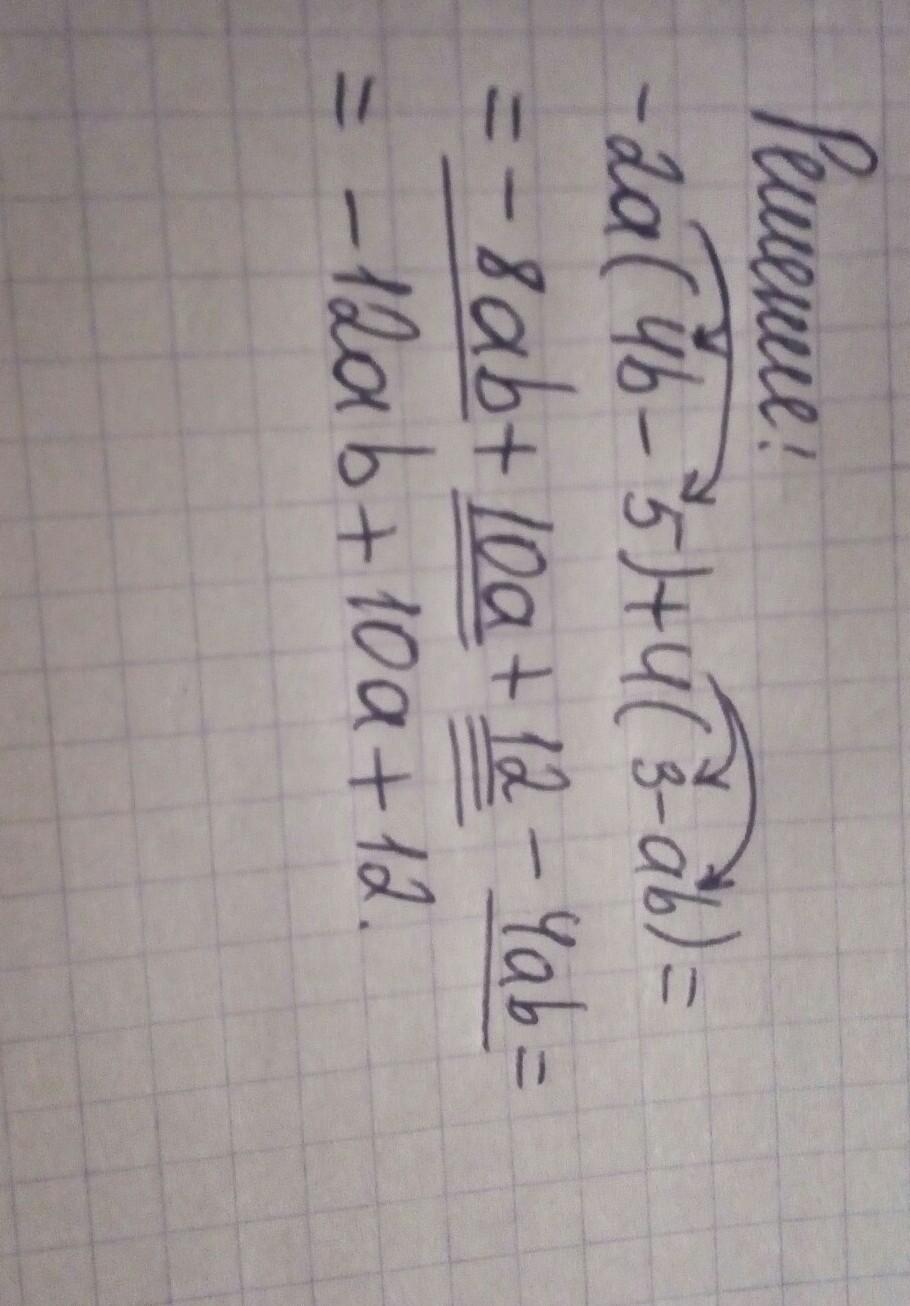 Решение:
-2a(4b-5)+4(3-ab)=
=-8ab+10a+12-4ab=
=-12ab+10a+12.